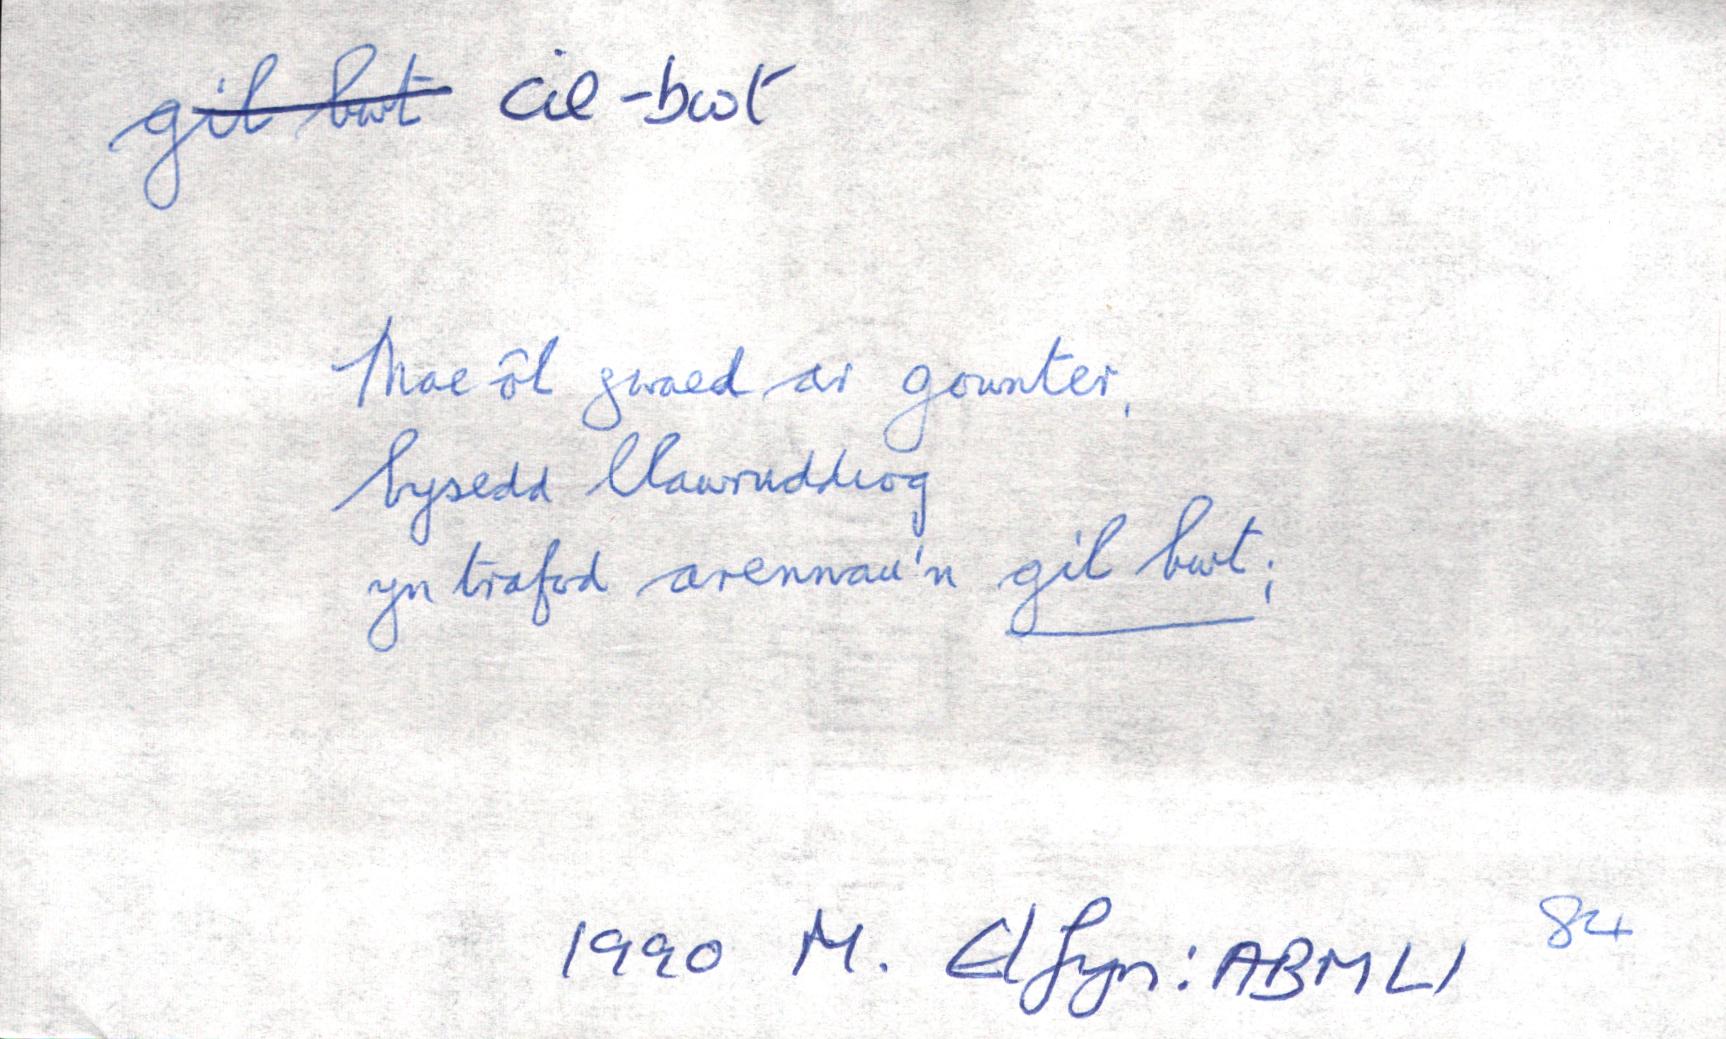 gil bwt cil-bwt
Mae ôl gwaed ar gownter,
bysedd llawruddiog
yn trafod arennau'n gil bwt;
1990 M. Elfyn: ABMLl 84